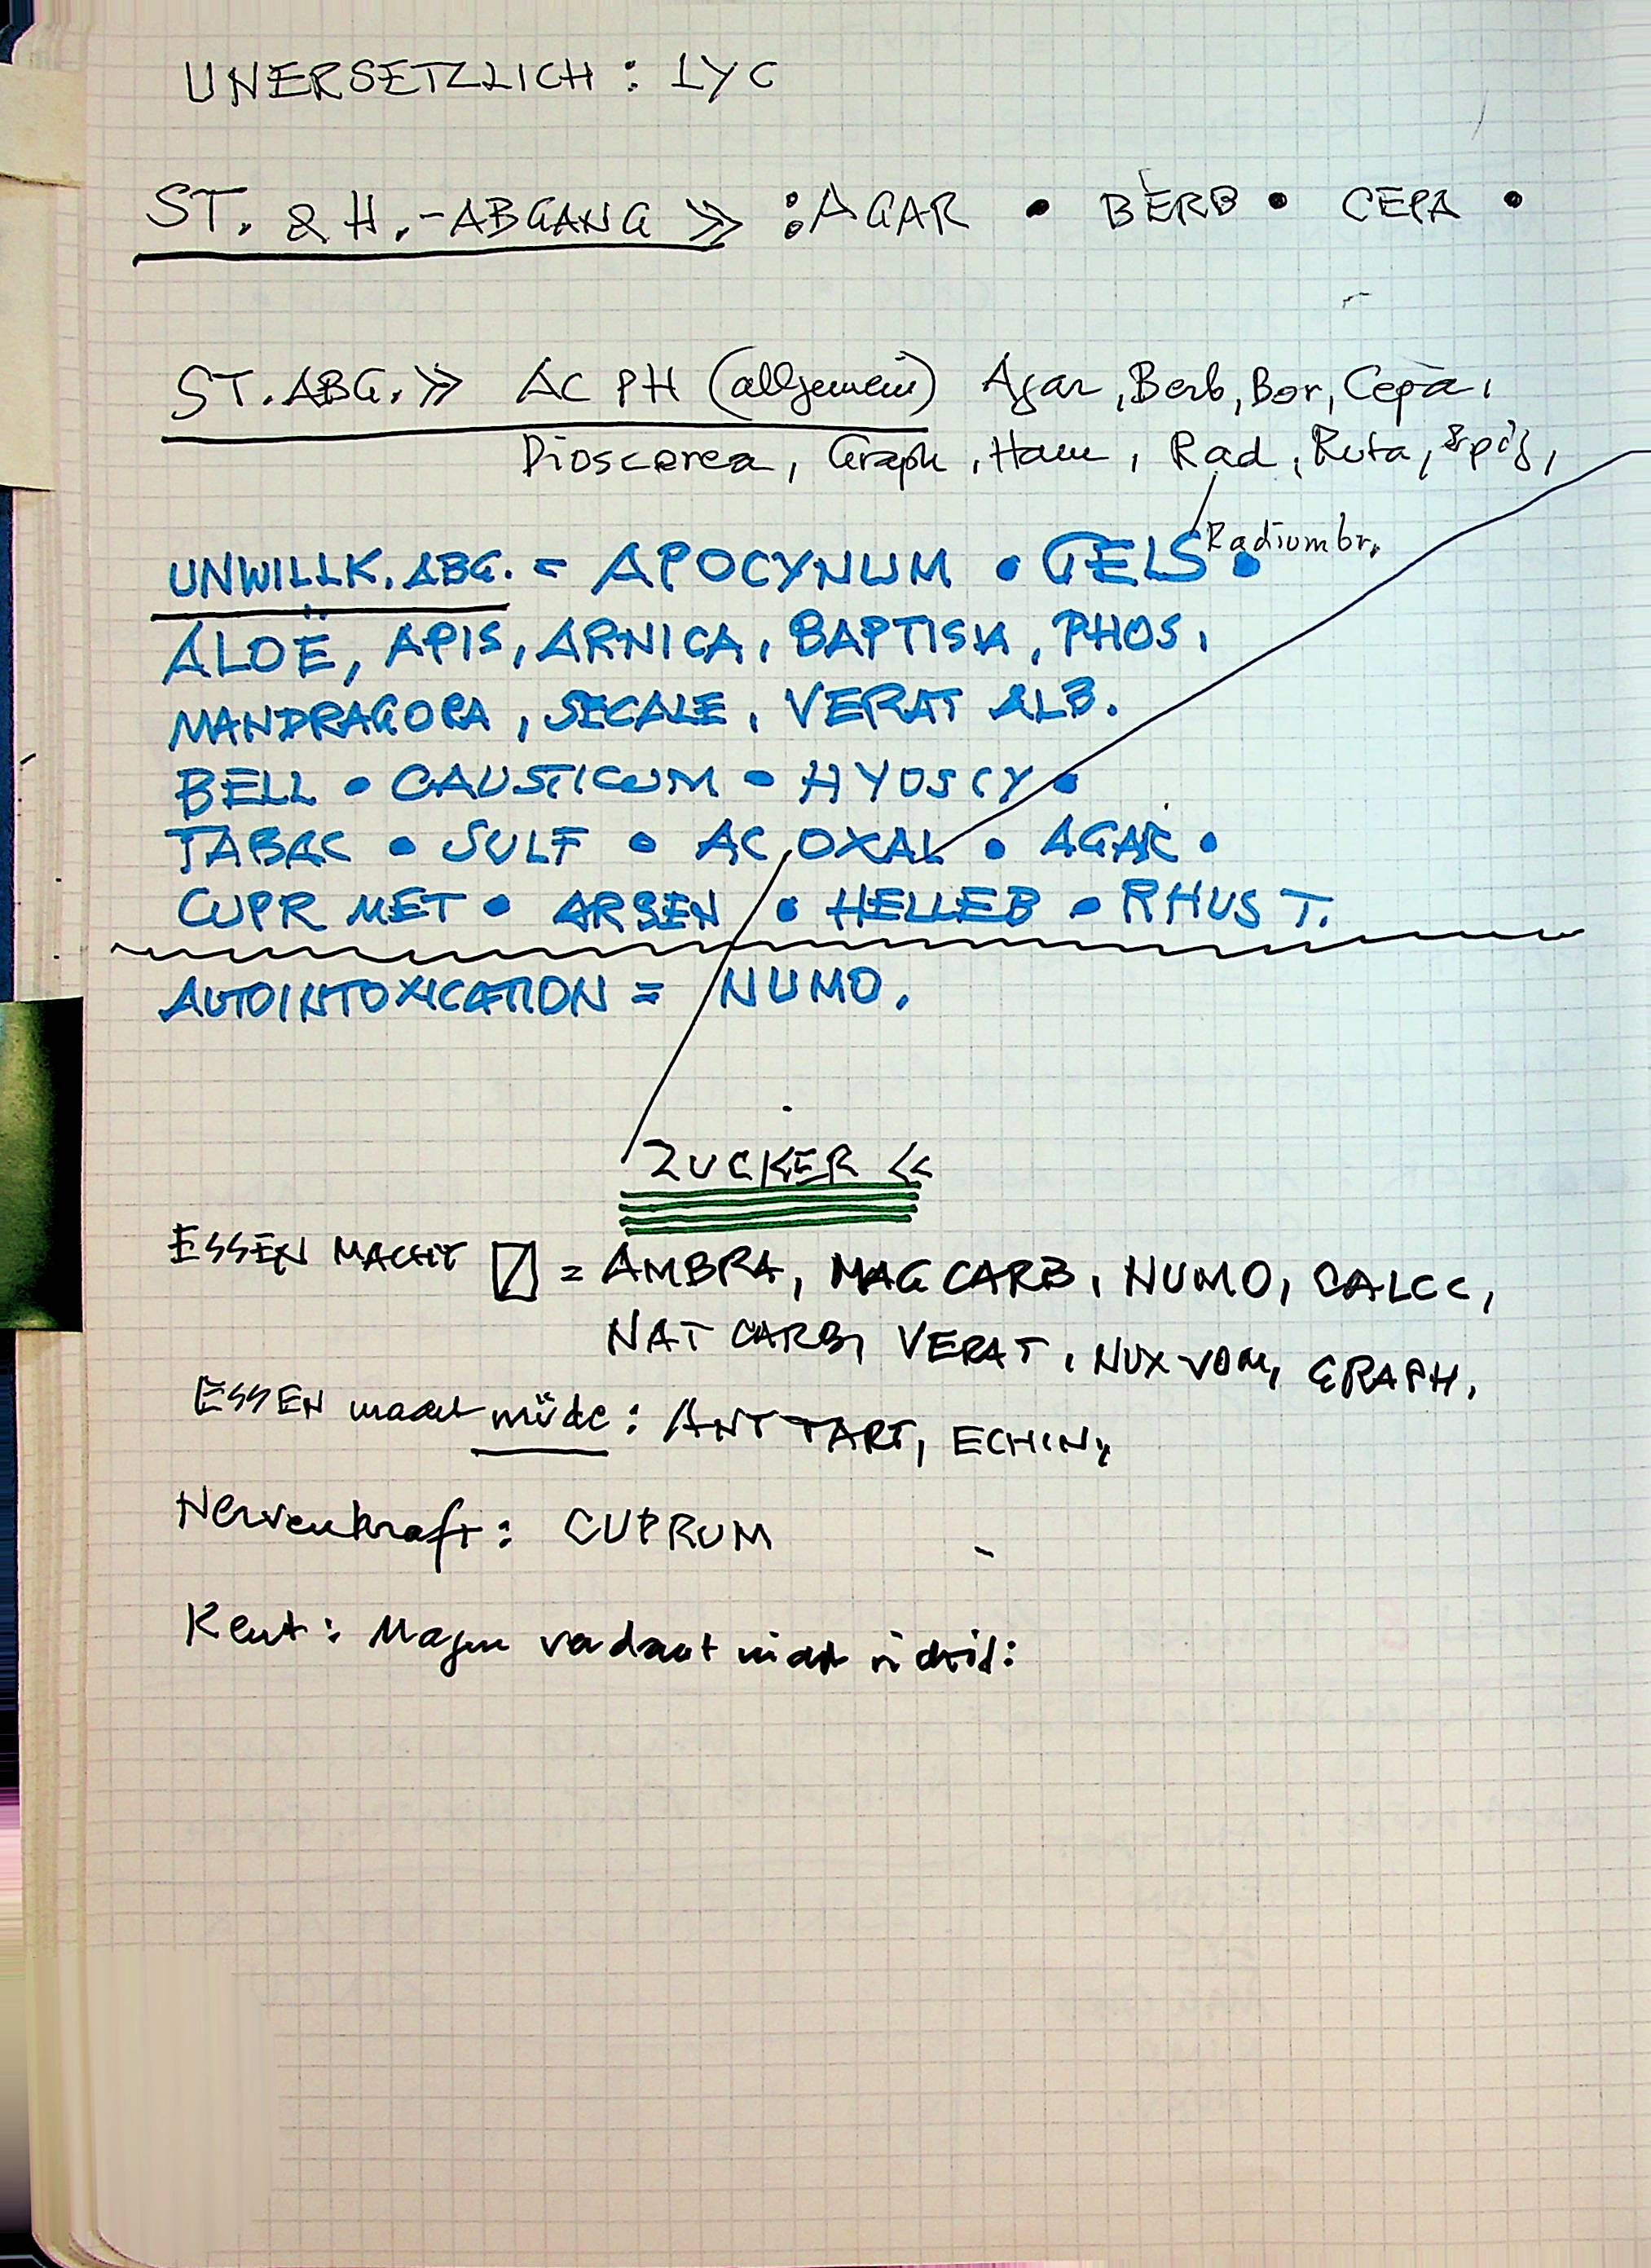 UNERSETZLICH : LYC
ST. & H.-ABGANG >> : AGAR • BERB • CEPA •
ST. ABG. >> AC PH (allgemein) Agar, Berb, Bor, Cepa,
Dioscorea, Graph, Ham, Rad, Ruta, Spig,
Radiumbr.
UNWILLK. ABG. = APOCYNUM • GELS •
ALOË, APIS, ARNICA, BAPTISIA, PHOS,
MANDRAGORA, SECALE, VERAT ALB.
BELL • CAUSTICUM • HYOSCY •
TABAC • SULF • AC OXAL • AGAR •
CUPR MET • ARSEN • HELLEB • RHUS T.
AUTOINTOXICATION = NUMO.
ZUCKER <<
ESSEN MACHT = AMBRA, MAG CARB, NUMO, CALC C,
NAT CARB, VERAT, NUX VOM, GRAPH,
ESSEN macht müde : ANT TART, ECHIN,
Nervenkraft : CUPRUM
Kent : Magen verdaut nicht richtig :